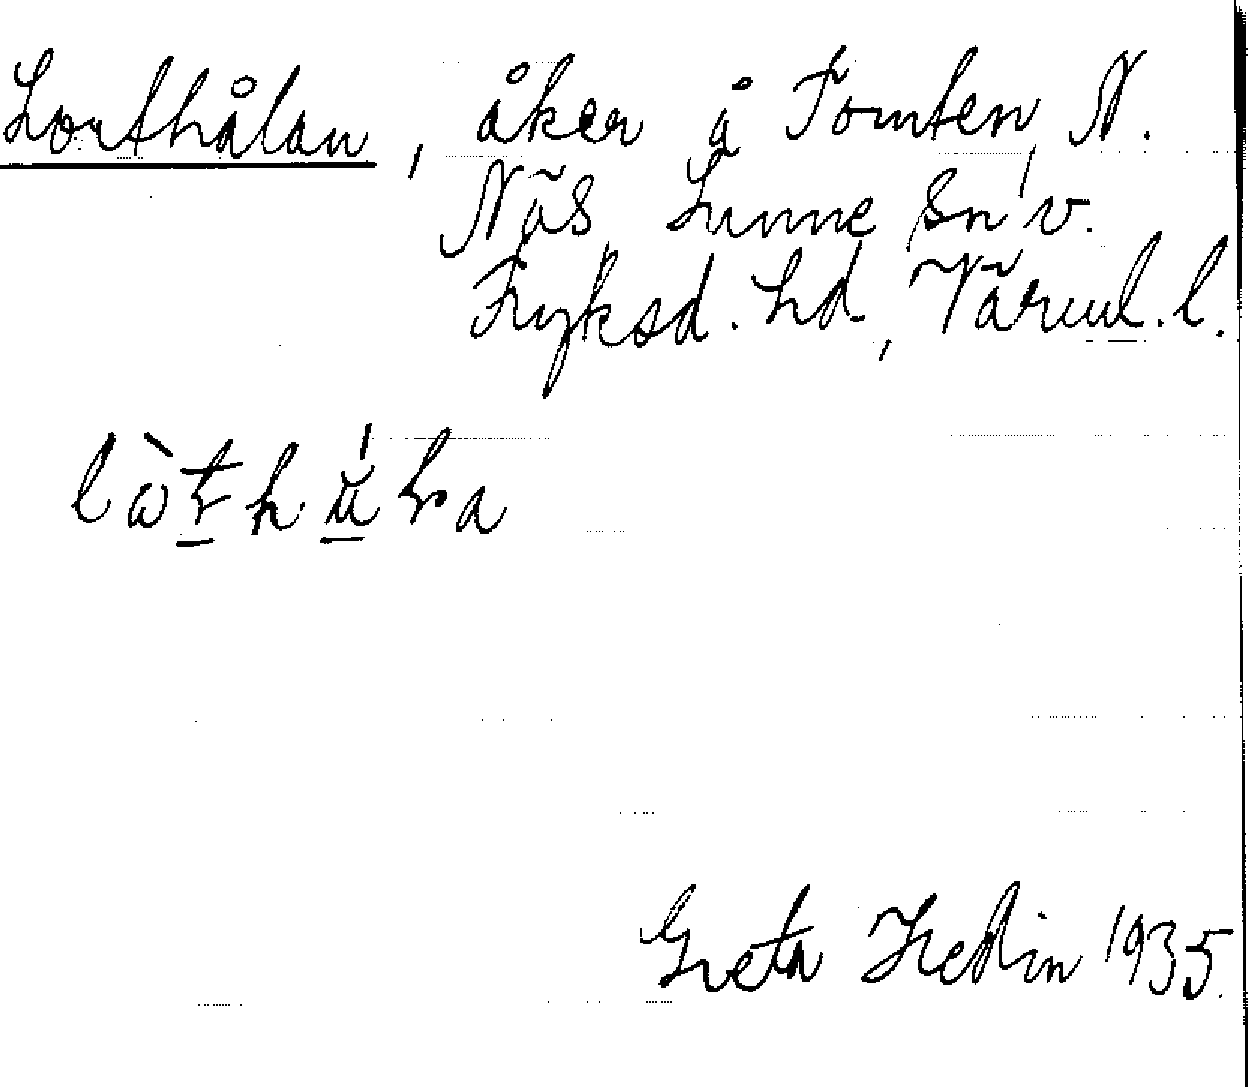 Lorthålan, åker å Tomten, N.
Näs, Sunne sn v.
Fryksd. hd, Värml. l.
Greta Hedin 1935.